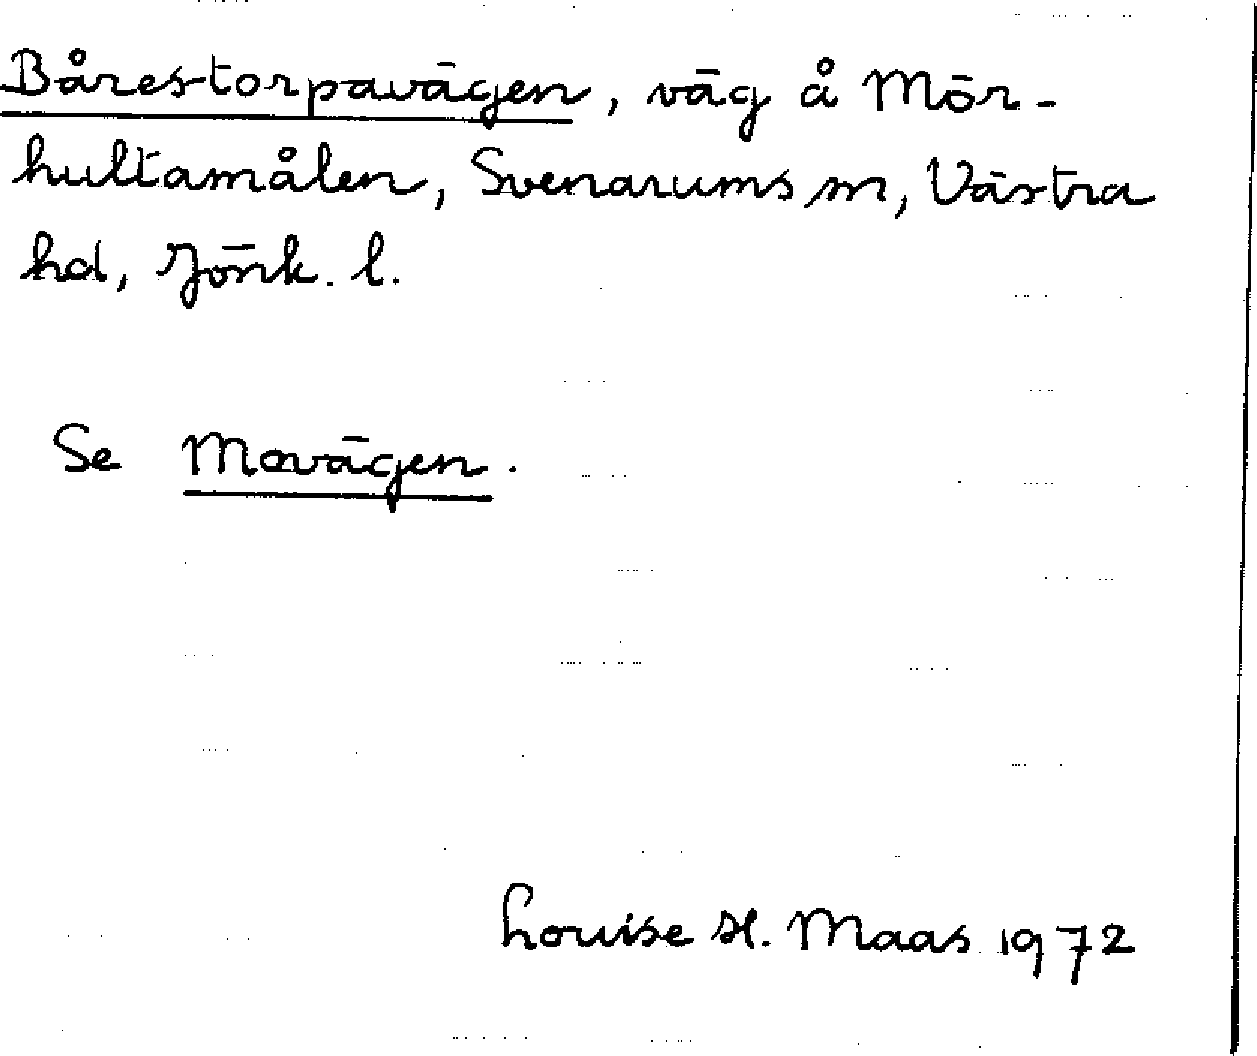 Bårestorpavägen, väg å Mör-
hultamålen, Svenarums sn, Västra
hd, Jönk. l.
Se Movägen.
Louise H. Maas 1972